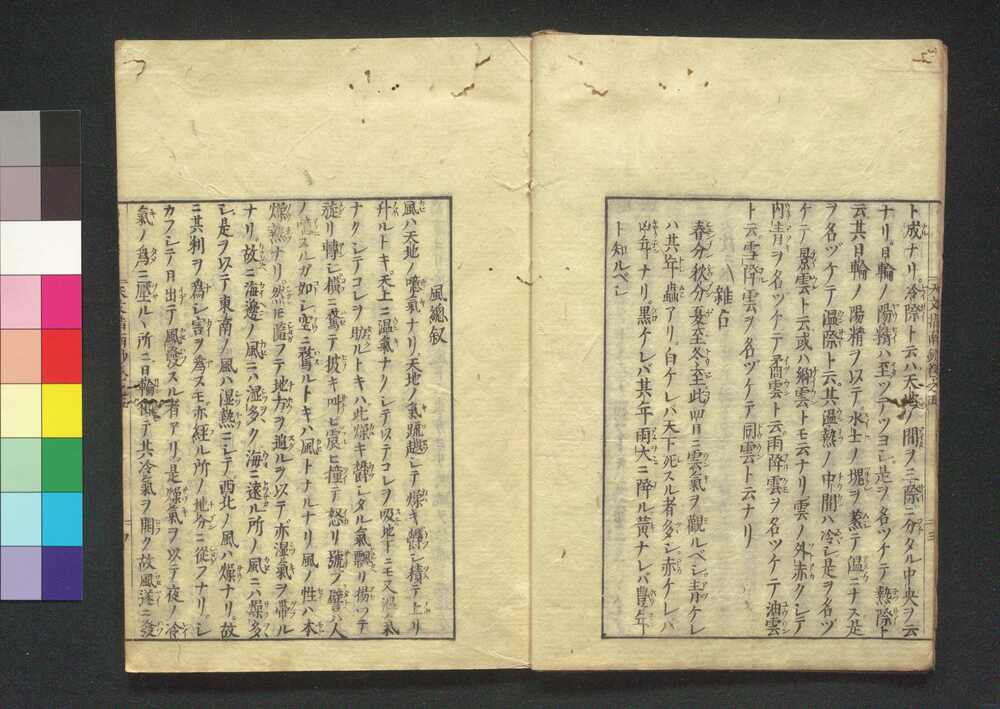 ト成ナリ冷際ト云ハ天地ノ間ヲ三際ニ分タル中央ヲ云
ナリ日輪ノ陽精ハ至ツテツヨシ是ヲ名ツケテ熱際ト
云其日輪ノ陽精ヲ以テ水土ノ塊ヲ蒸テ温ニナス是
ヲ名ヅケテ温際ト云其温熱ノ中間ハ冷シ是ヲ名ヅ
ケテ景雲ト云或ハ卿雲トモ云ナリ雲ノ外赤クシテ
内青ヲ名ツケテ矞雲ト云雨降雲ヲ名ツケテ油雲
ト云雪降雲ヲ名ヅケテ同雲ト云ナリ
雜占
春分秋分夏至冬至此四日ニ雲氣ヲ觀ルベシ青ケレ
ハ其年蟲アリ白ケレバ天下死スル者多シ赤ケレバ
凶年ナリ黒ケレバ其年雨大ニ降ル黄ナレバ豊年
ト知ルベシ
風總叙
風ハ天地ノ噫氣ナリ天地ノ氣 シテ燥キ 積テ上リ
升ルトキ天上ニ温氣ナクシテ以テコレヲ吸地下ニモ又濕氣
ナクシテコレヲ助ルトキハ此燥キ シタル氣飄リ揚ツテ
旋リ轉シ橫ニ騖テ拔キ叫ビ震ヒ撞テ怒リ號フ譬バ人
ノ スルカ如シ空ニ騖ルトキハ風トナルナリ風ノ性ハ本
燥熱ナリ然 モ隨フテ地方ヲ過ルヲ以テ亦湿氣ヲ帶ル
ナリ故ニ海邊ノ風ニハ湿多ク海ニ遠ル所ノ風ニハ燥多
シ是ヲ以テ東南ノ風ハ湿熱ニシテ西北ノ風ハ燥ナリ故
ニ其利ヲ爲シ害ヲ爲スモ亦経ル所ノ地分ニ從フナリシ
カフシテ日出テ風發スル者アリ是燥氣ヲ以テ夜ノ冷
氣ノ爲ニ壓ルヽ所ニ日輪 テ其冷氣ヲ開ク故風遂ニ發